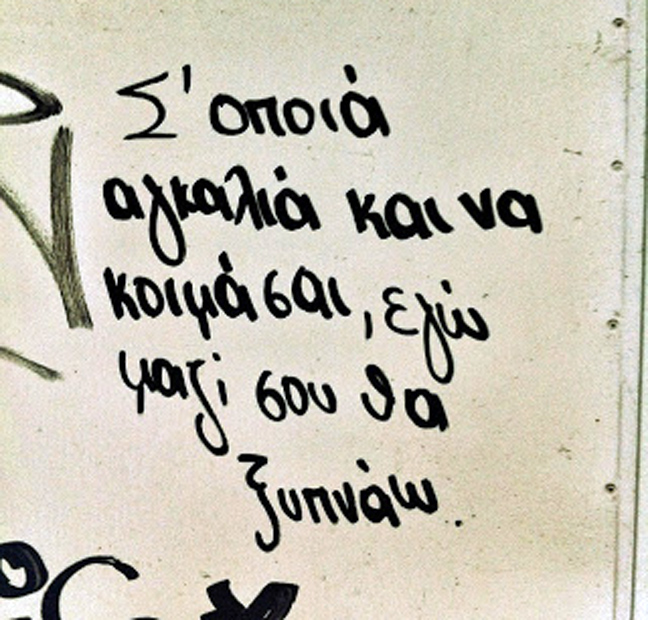 Σ' οποιά
αγκαλιά και να
κοιμάσαι, εγώ
μαζί σου θα
ξυπνάω.